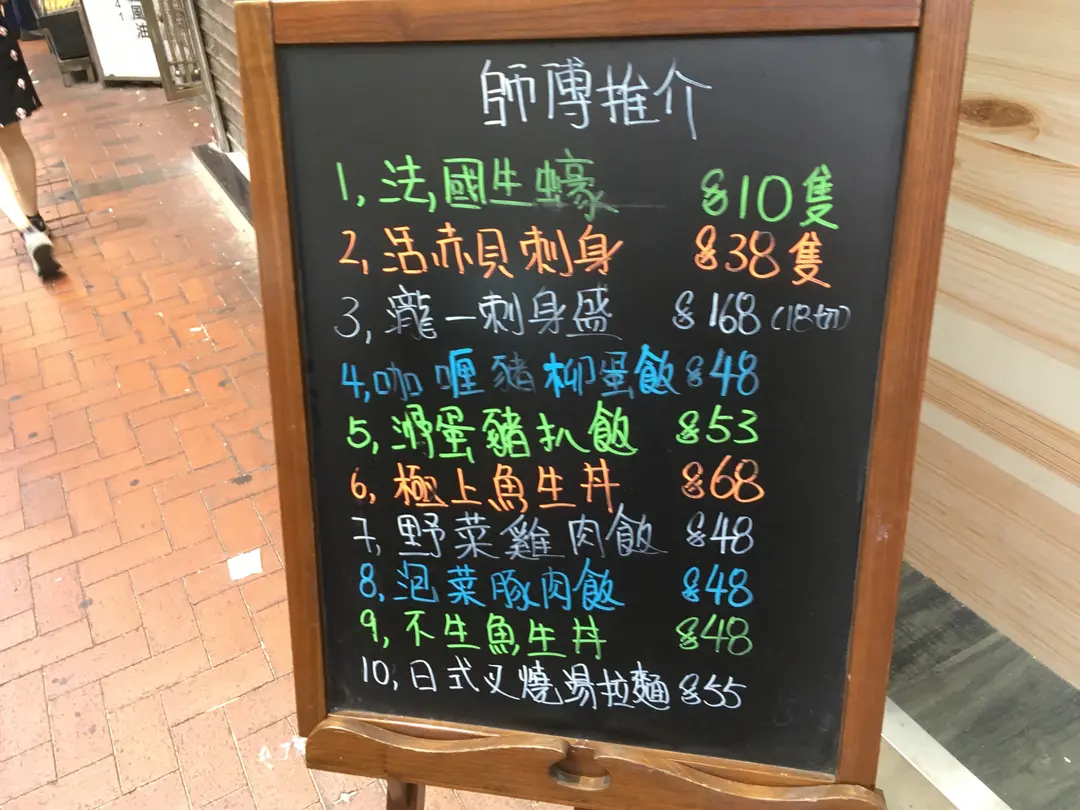 師傅推介
1, 法國生蠔 $10隻
2, 活赤貝刺身 $38隻
3, 瀧一刺身盛 $168(18切)
4, 咖喱豬柳蛋飯 $48
5, 滑蛋豬扒飯 $53
6, 極上魚生丼 $68
7, 野菜雞肉飯 $48
8, 泡菜豚肉飯 $48
9, 不生魚生丼 $48
10, 日式叉燒湯拉麵 $55